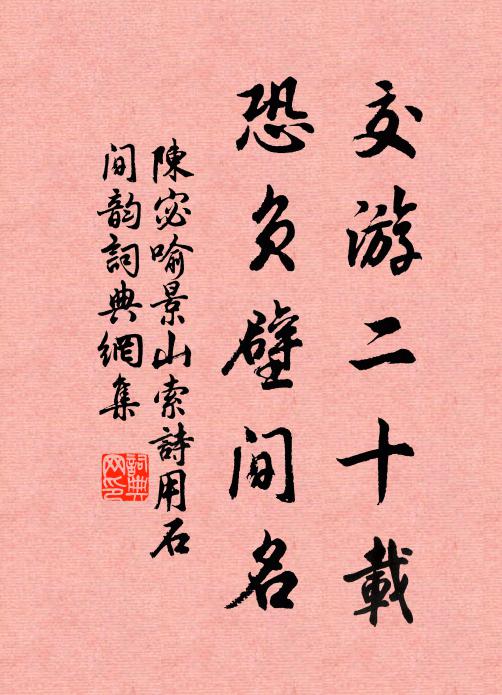 交游二十載
恐負壁間名
陳宓喻景山索詩用石
間韵詞典網集
詞典網印